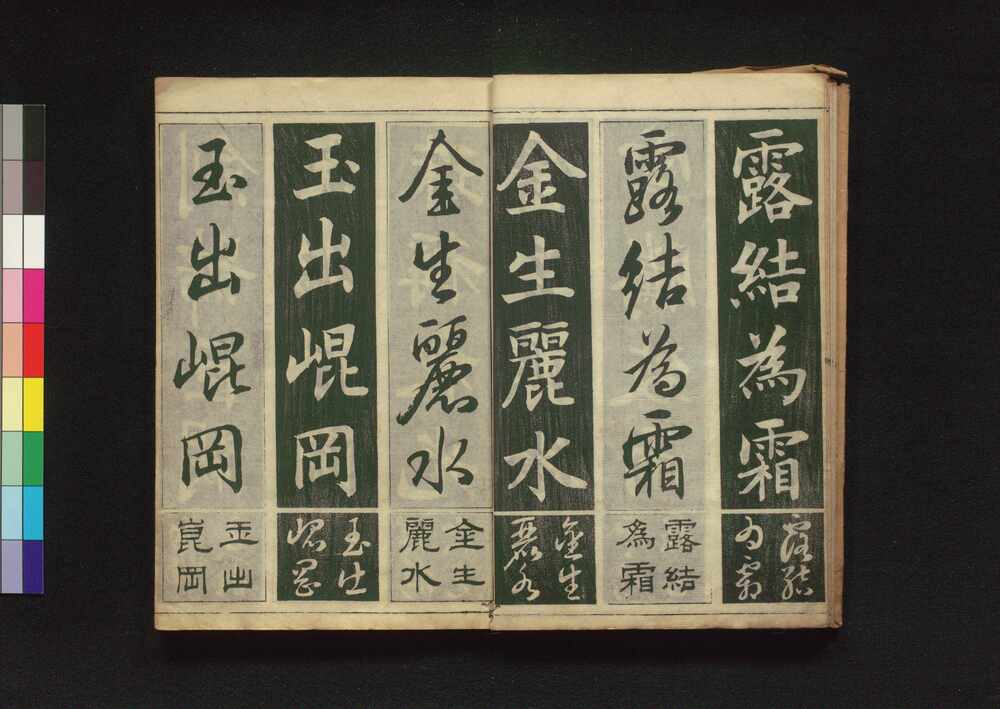 露結為霜
露結
為霜
露結為霜
露結
為霜
金生麗水
金生
麗水
金生麗水
金生
麗水
玉出崐岡
玉出
崐岡
玉出崐岡
玉出
崑岡